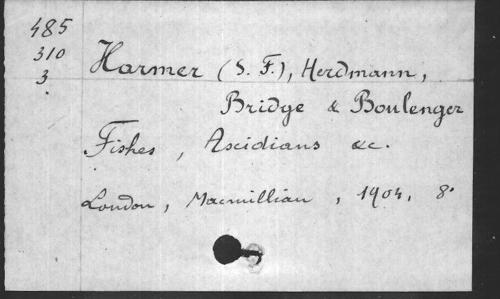 485
310
3
Harmer (S. F.), Herdmann,
Bridge & Boulenger
Fishes, Ascidians &c.
London, Macmillian, 1904, 8°